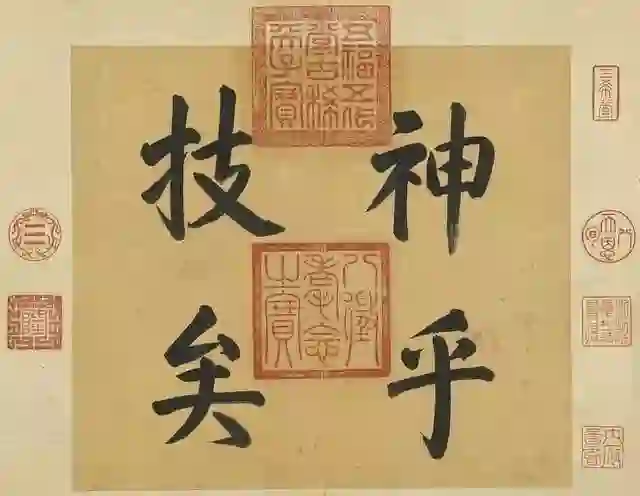 神乎
技矣
五福五代堂古稀天子寶
八徵耄念之寶
三希堂
天恩八旬
隆